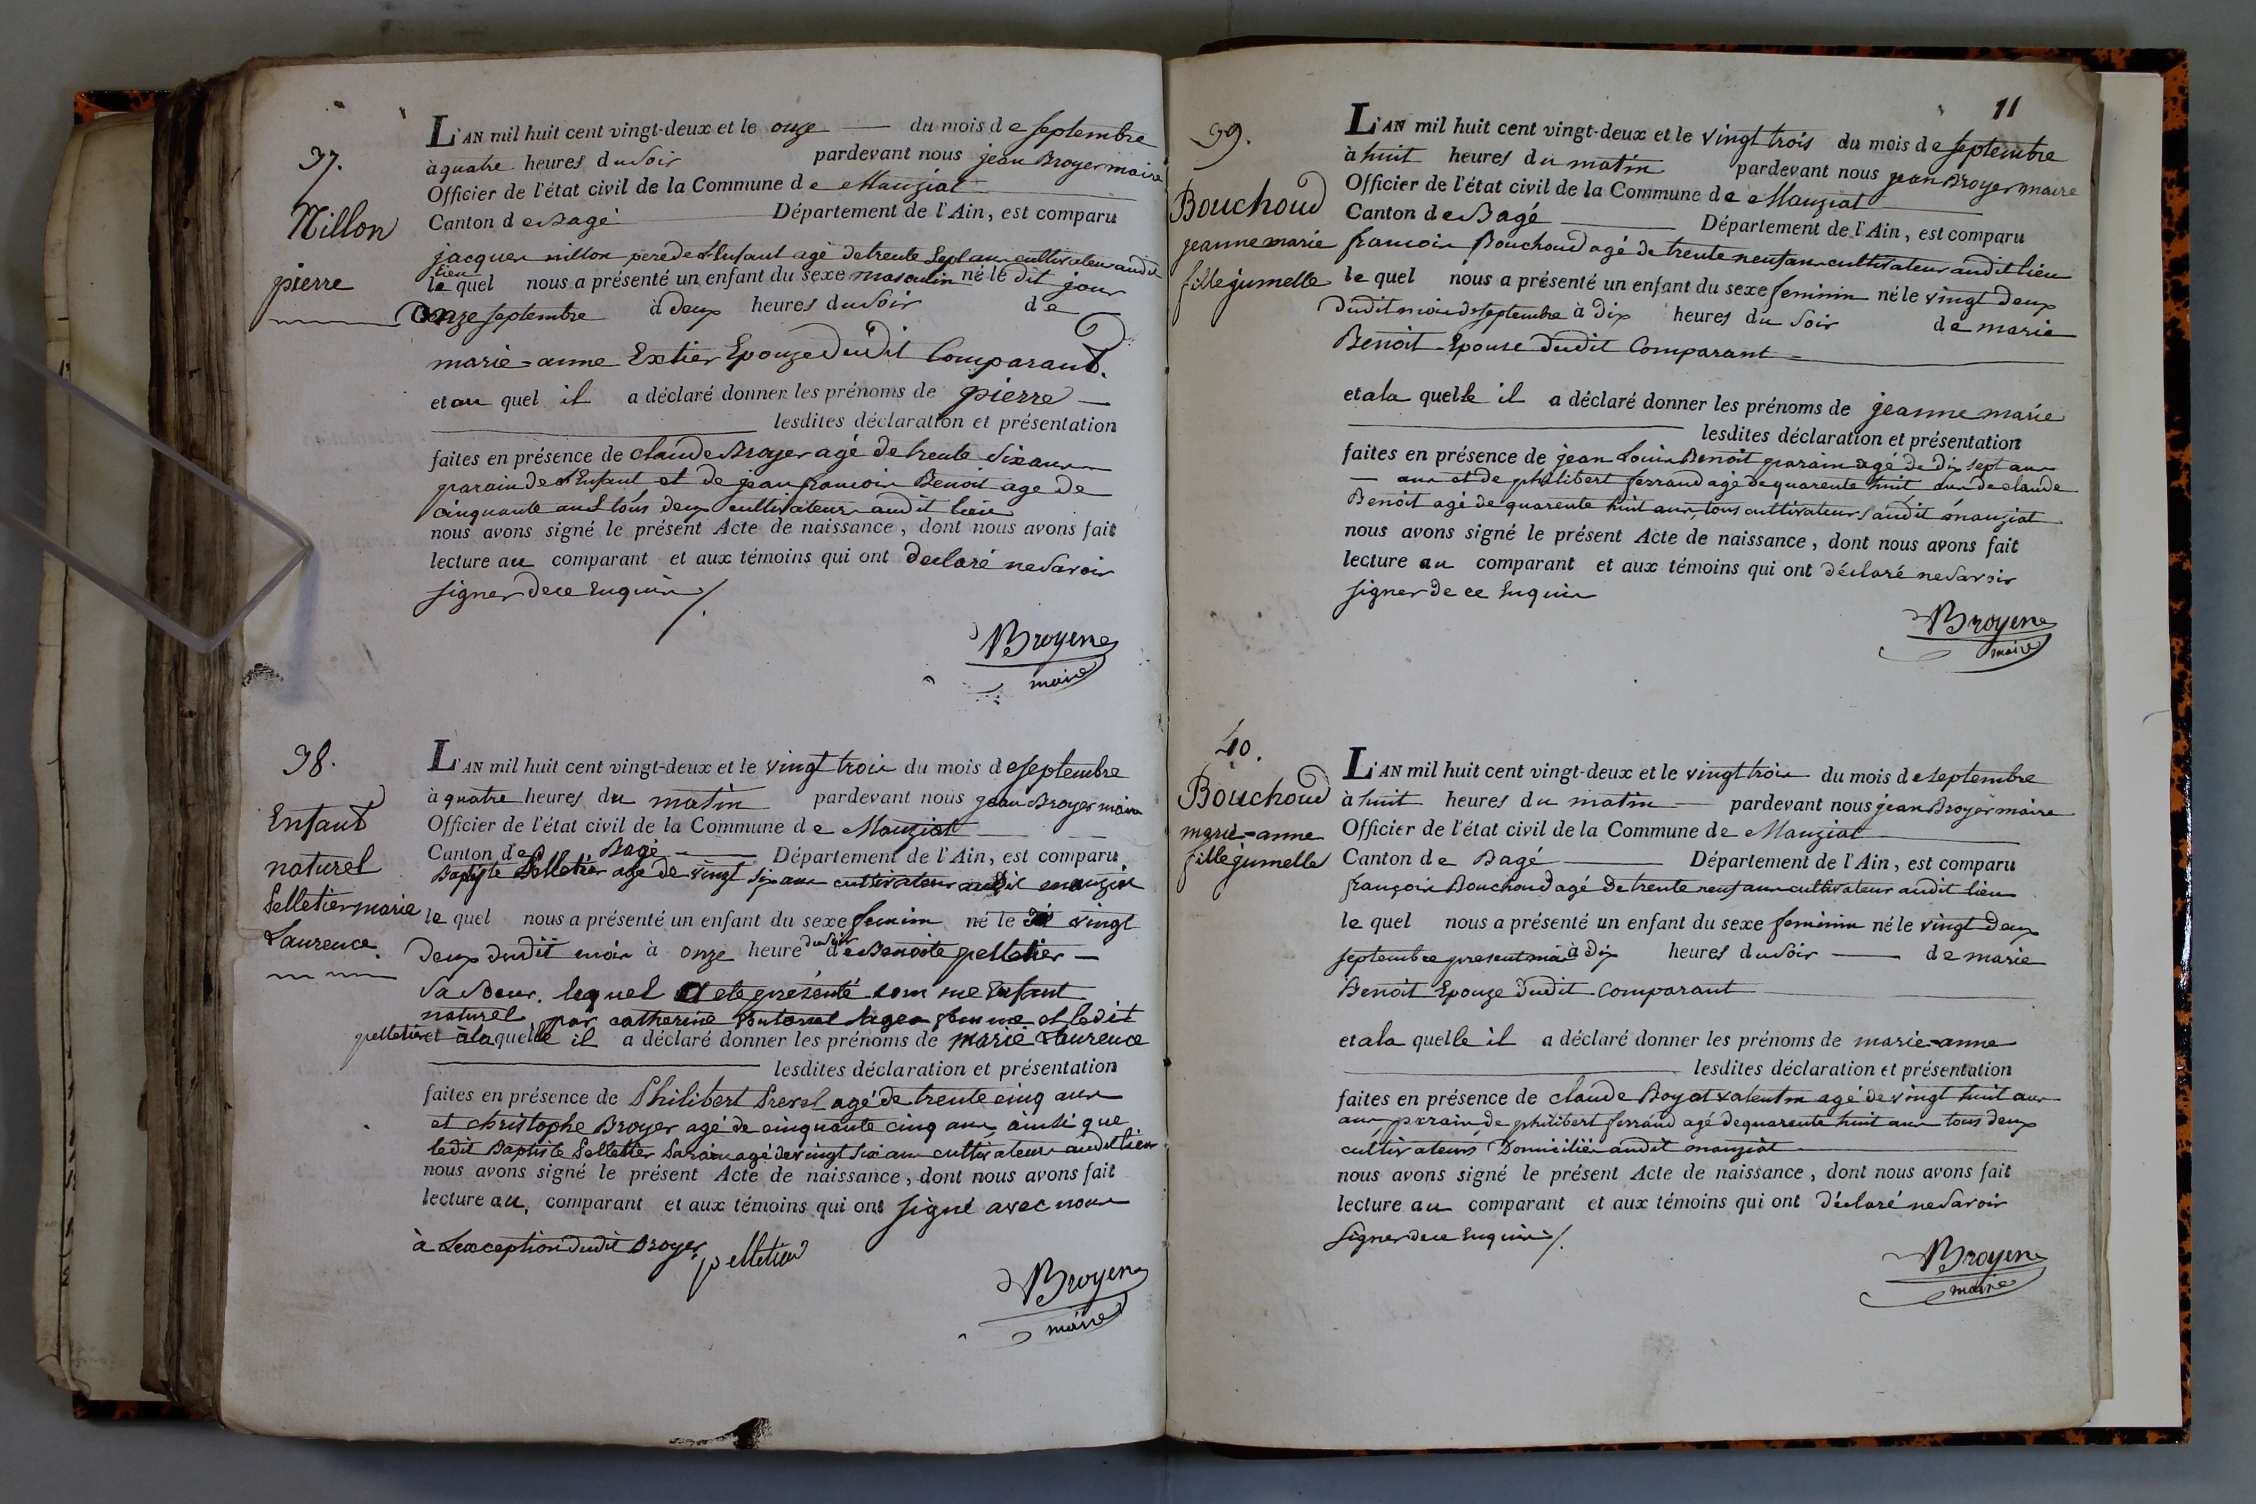 37.
Nillon
pierre
L'AN mil huit cent vingt-deux et le onze du mois de septembre
à quatre heures du soir pardevant nous jean Broyer maire
Officier de l'état civil de la Commune de Manziat
Canton de Bagé Département de l'Ain, est comparu
jacques nillon pere de l'Enfant agé de trente sept ans cultivateur audit
lieu
le quel nous a présenté un enfant du sexe masculin né le dit jour
onze septembre à deux heures du soir de
marie-anne Extier Epouze dudit Comparant.
et au quel il a déclaré donner les prénoms de pierre
lesdites déclaration et présentation
faites en présence de claude Broyer agé de trente six ans
parain de l'Enfant et de jean francois Benoit age de
cinquante ans tous deux cultivateurs audit lieu
nous avons signé le présent Acte de naissance, dont nous avons fait
lecture au comparant et aux témoins qui ont declaré ne savoir
signer de ce Enquis /.
Broyer
maire
38.
Enfant
naturel
Pelletier marie
Laurence.
L'AN mil huit cent vingt-deux et le vingt trois du mois de septembre
à quatre heures du matin pardevant nous jean Broyer maire
Officier de l'état civil de la Commune de Manziat
Canton de Bagé Département de l'Ain, est comparu
Baptiste Pelletier agé de vingt six ans cultivateur audit manziat
le quel nous a présenté un enfant du sexe feminin né le vingt
deux dudit mois à onze heure du soir de Benoite pelletier
sa soeur. lequel a ete présenté comme Enfant
naturel par catherine sage femme et ledit
pelletier et à la quelle il a déclaré donner les prénoms de marie Laurence
lesdites déclaration et présentation
faites en présence de Philibert Prevel agé de trente cinq ans
et christophe Broyer agé de cinquante cinq ans ainsi que
ledit Baptiste Pelletier parain agé de vingt six ans cultivateurs audit lieu
nous avons signé le présent Acte de naissance, dont nous avons fait
lecture au, comparant et aux témoins qui ont signé avec nous
à Lexception dudit Broyer
pelletier
Broyer
maire
11
39.
Bouchoud
jeanne marie
fille jumelle
L'AN mil huit cent vingt-deux et le vingt trois du mois de septembre
à huit heures du matin pardevant nous jean Broyer maire
Officier de l'état civil de la Commune de Manziat
Canton de Bagé Département de l'Ain, est comparu
francois Bouchoud agé de trente neuf ans cultivateur audit lieu
le quel nous a présenté un enfant du sexe feminin né le vingt deux
dudit mois de septembre à dix heures du soir de marie
Benoit Epouse dudit Comparant
et a la quelle il a déclaré donner les prénoms de jeanne marie
lesdites déclaration et présentation
faites en présence de jean Louis Benoit parain agé de dix sept ans
ans et de philibert ferrand agé de quarente huit ans de claude
Benoit agé de quarente huit ans, tous cultivateurs audit manziat
nous avons signé le présent Acte de naissance, dont nous avons fait
lecture au comparant et aux témoins qui ont déclaré ne savoir
signer de ce Enquis
Broyer
maire
40.
Bouchoud
marie-anne
fille jumelle
L'AN mil huit cent vingt-deux et le vingt trois du mois de septembre
à huit heures du matin pardevant nous jean Broyer maire
Officier de l'état civil de la Commune de Manziat
Canton de Bagé Département de l'Ain, est comparu
françois Bouchoud agé de trente neuf ans cultivateur audit lieu
le quel nous a présenté un enfant du sexe feminin né le vingt deux
septembre present mois à dix heures du soir de marie
Benoit Epouze dudit Comparant
et a la quelle il a déclaré donner les prénoms de marie-anne
lesdites déclaration et présentation
faites en présence de claude Boyat valentin agé de vingt huit ans
ans, parain de philibert ferrand agé de quarente huit ans tous deux
cultivateurs Domiciliés audit manziat
nous avons signé le présent Acte de naissance, dont nous avons fait
lecture au comparant et aux témoins qui ont déclaré ne savoir
signer de ce Enquis /.
Broyer
maire